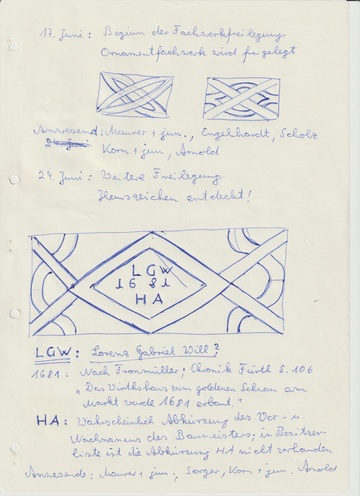 17. Juni: Beginn der Fachwerkfreilegung
Ornamentfachwerk wird freigelegt
Anwesend: Maurer + jun., Engelhardt, Scholz
24. Juni Korn + jun, Arnold
24. Juni: Weitere Freilegung
Hauszeichen entdeckt!
LGW
16 81
HA
LGW: Lorenz Gabriel Will?
1681: Nach Fronmüller: Chronik Fürth S. 106
"Das Wirthshaus zum goldenen Schwan am
Markt wurde 1681 erbaut."
HA: Wahrscheinlich Abkürzung des Vor- u.
Nachnamens des Baumeisters; in Besitzer-
liste ist die Abkürzung HA nicht vorhanden
Anwesende: Maurer + jun., Sorger, Korn + jun. Arnold